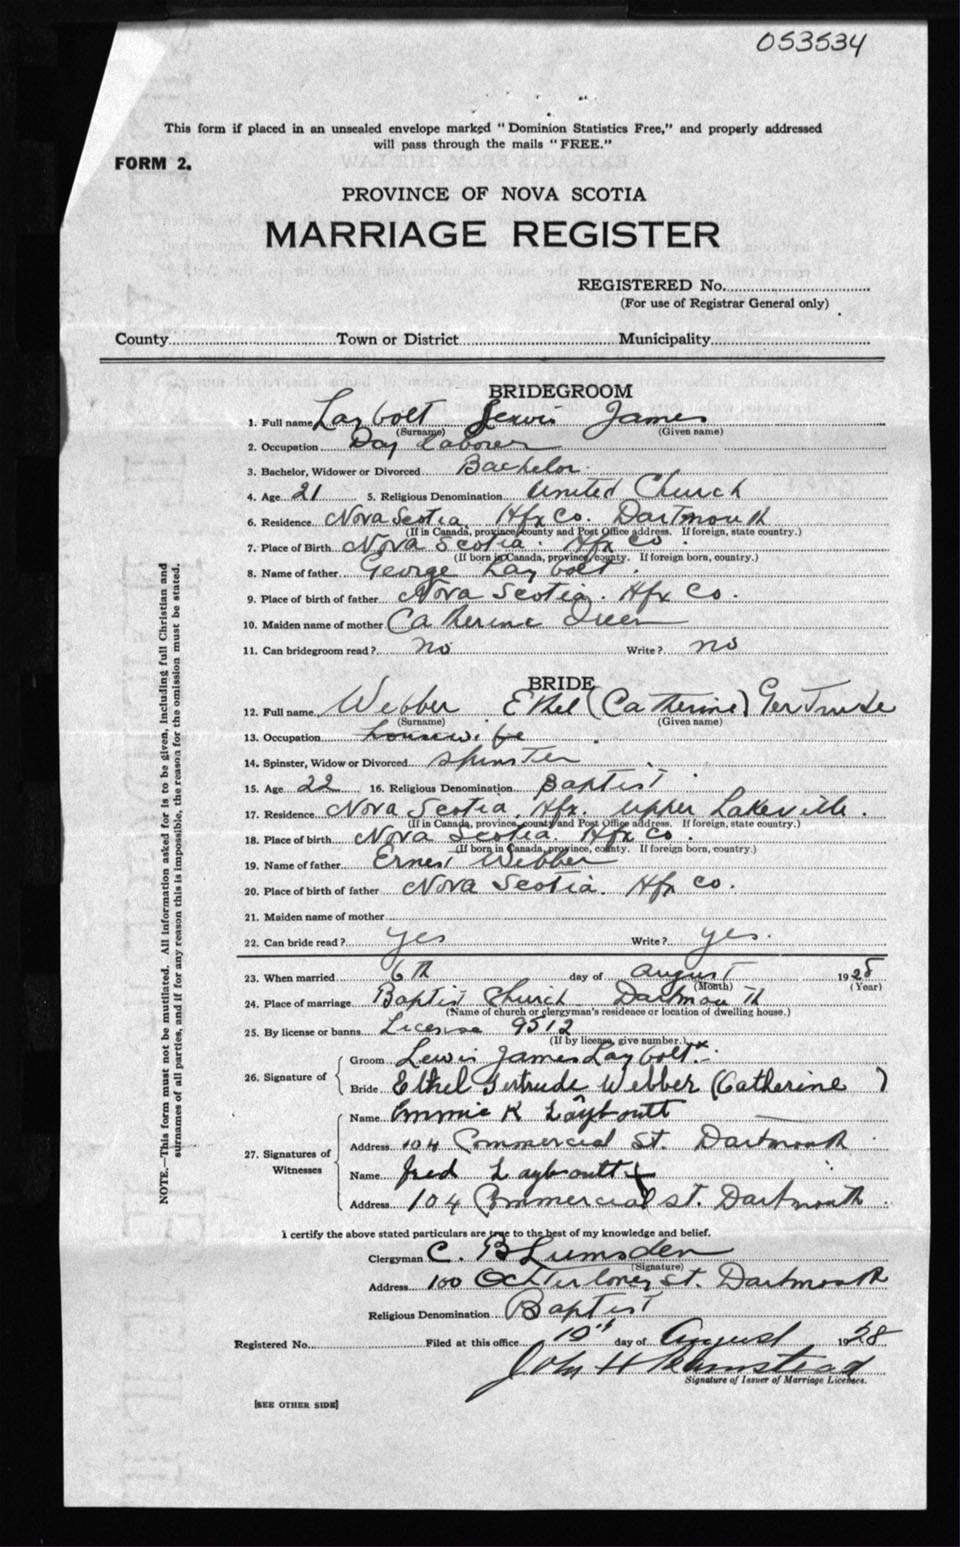 053534
This form if placed in an unsealed envelope marked "Dominion Statistics Free," and properly addressed
will pass through the mails "FREE."
FORM 2.
PROVINCE OF NOVA SCOTIA
MARRIAGE REGISTER
REGISTERED No.
(For use of Registrar General only)
County Town or District Municipality
BRIDEGROOM
1. Full name Laybolt Lewis James
(Surname) (Given name)
2. Occupation Day Laborer
3. Bachelor, Widower or Divorced Bachelor.
4. Age 21 5. Religious Denomination United Church
6. Residence Nova Scotia. Hfx Co. Dartmouth
(If in Canada, province, county and Post Office address. If foreign, state country.)
7. Place of Birth Nova Scotia. Hfx Co
(If born in Canada, province, county. If foreign born, country.)
8. Name of father George Laybolt.
9. Place of birth of father Nova Scotia. Hfx Co.
10. Maiden name of mother Catherine
11. Can bridegroom read? no Write? no
BRIDE
12. Full name Webber Ethel (Catherine) Gertrude
(Surname) (Given name)
13. Occupation housewife
14. Spinster, Widow or Divorced Spinster
15. Age 22 16. Religious Denomination Baptist.
17. Residence Nova Scotia, Hfx. Upper Lakeville.
(If in Canada, province, county and Post Office address. If foreign, state country.)
18. Place of birth Nova Scotia Hfx Co.
(If born in Canada, province, county. If foreign born, country.)
19. Name of father Ernest Webber
20. Place of birth of father Nova Scotia. Hfx Co.
21. Maiden name of mother
22. Can bride read? yes Write? yes.
23. When married 6th day of August 1928
(Month) (Year)
24. Place of marriage Baptist Church Dartmouth
(Name of church or clergyman's residence or location of dwelling house.)
25. By license or banns License 9512
(If by license, give number.)
26. Signature of Groom Lewis James Laybolt x
Bride Ethel Gertrude Webber (Catherine )
27. Signatures of Witnesses Name K Layboutt
Address 104 Commercial St. Dartmouth
Name Fred Layboutt
Address 104 Commercial St. Dartmouth.
I certify the above stated particulars are true to the best of my knowledge and belief.
Clergyman C. B Lumsden
(Signature)
Address 100 Ochterloney St. Dartmouth
Religious Denomination Baptist
Registered No. Filed at this office 10th day of August 1928
John H
Signature of Issuer of Marriage Licenses.
[SEE OTHER SIDE]
NOTE.—This form must not be mutilated. All information asked for is to be given, including full Christian and
surnames of all parties, and if for any reason this is impossible, the reason for the omission must be stated.